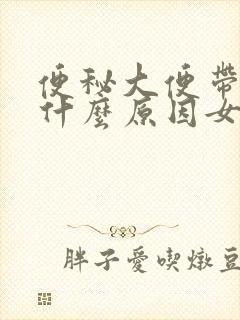 便秘大便帶
什麼原因女
胖子愛喫燉豆